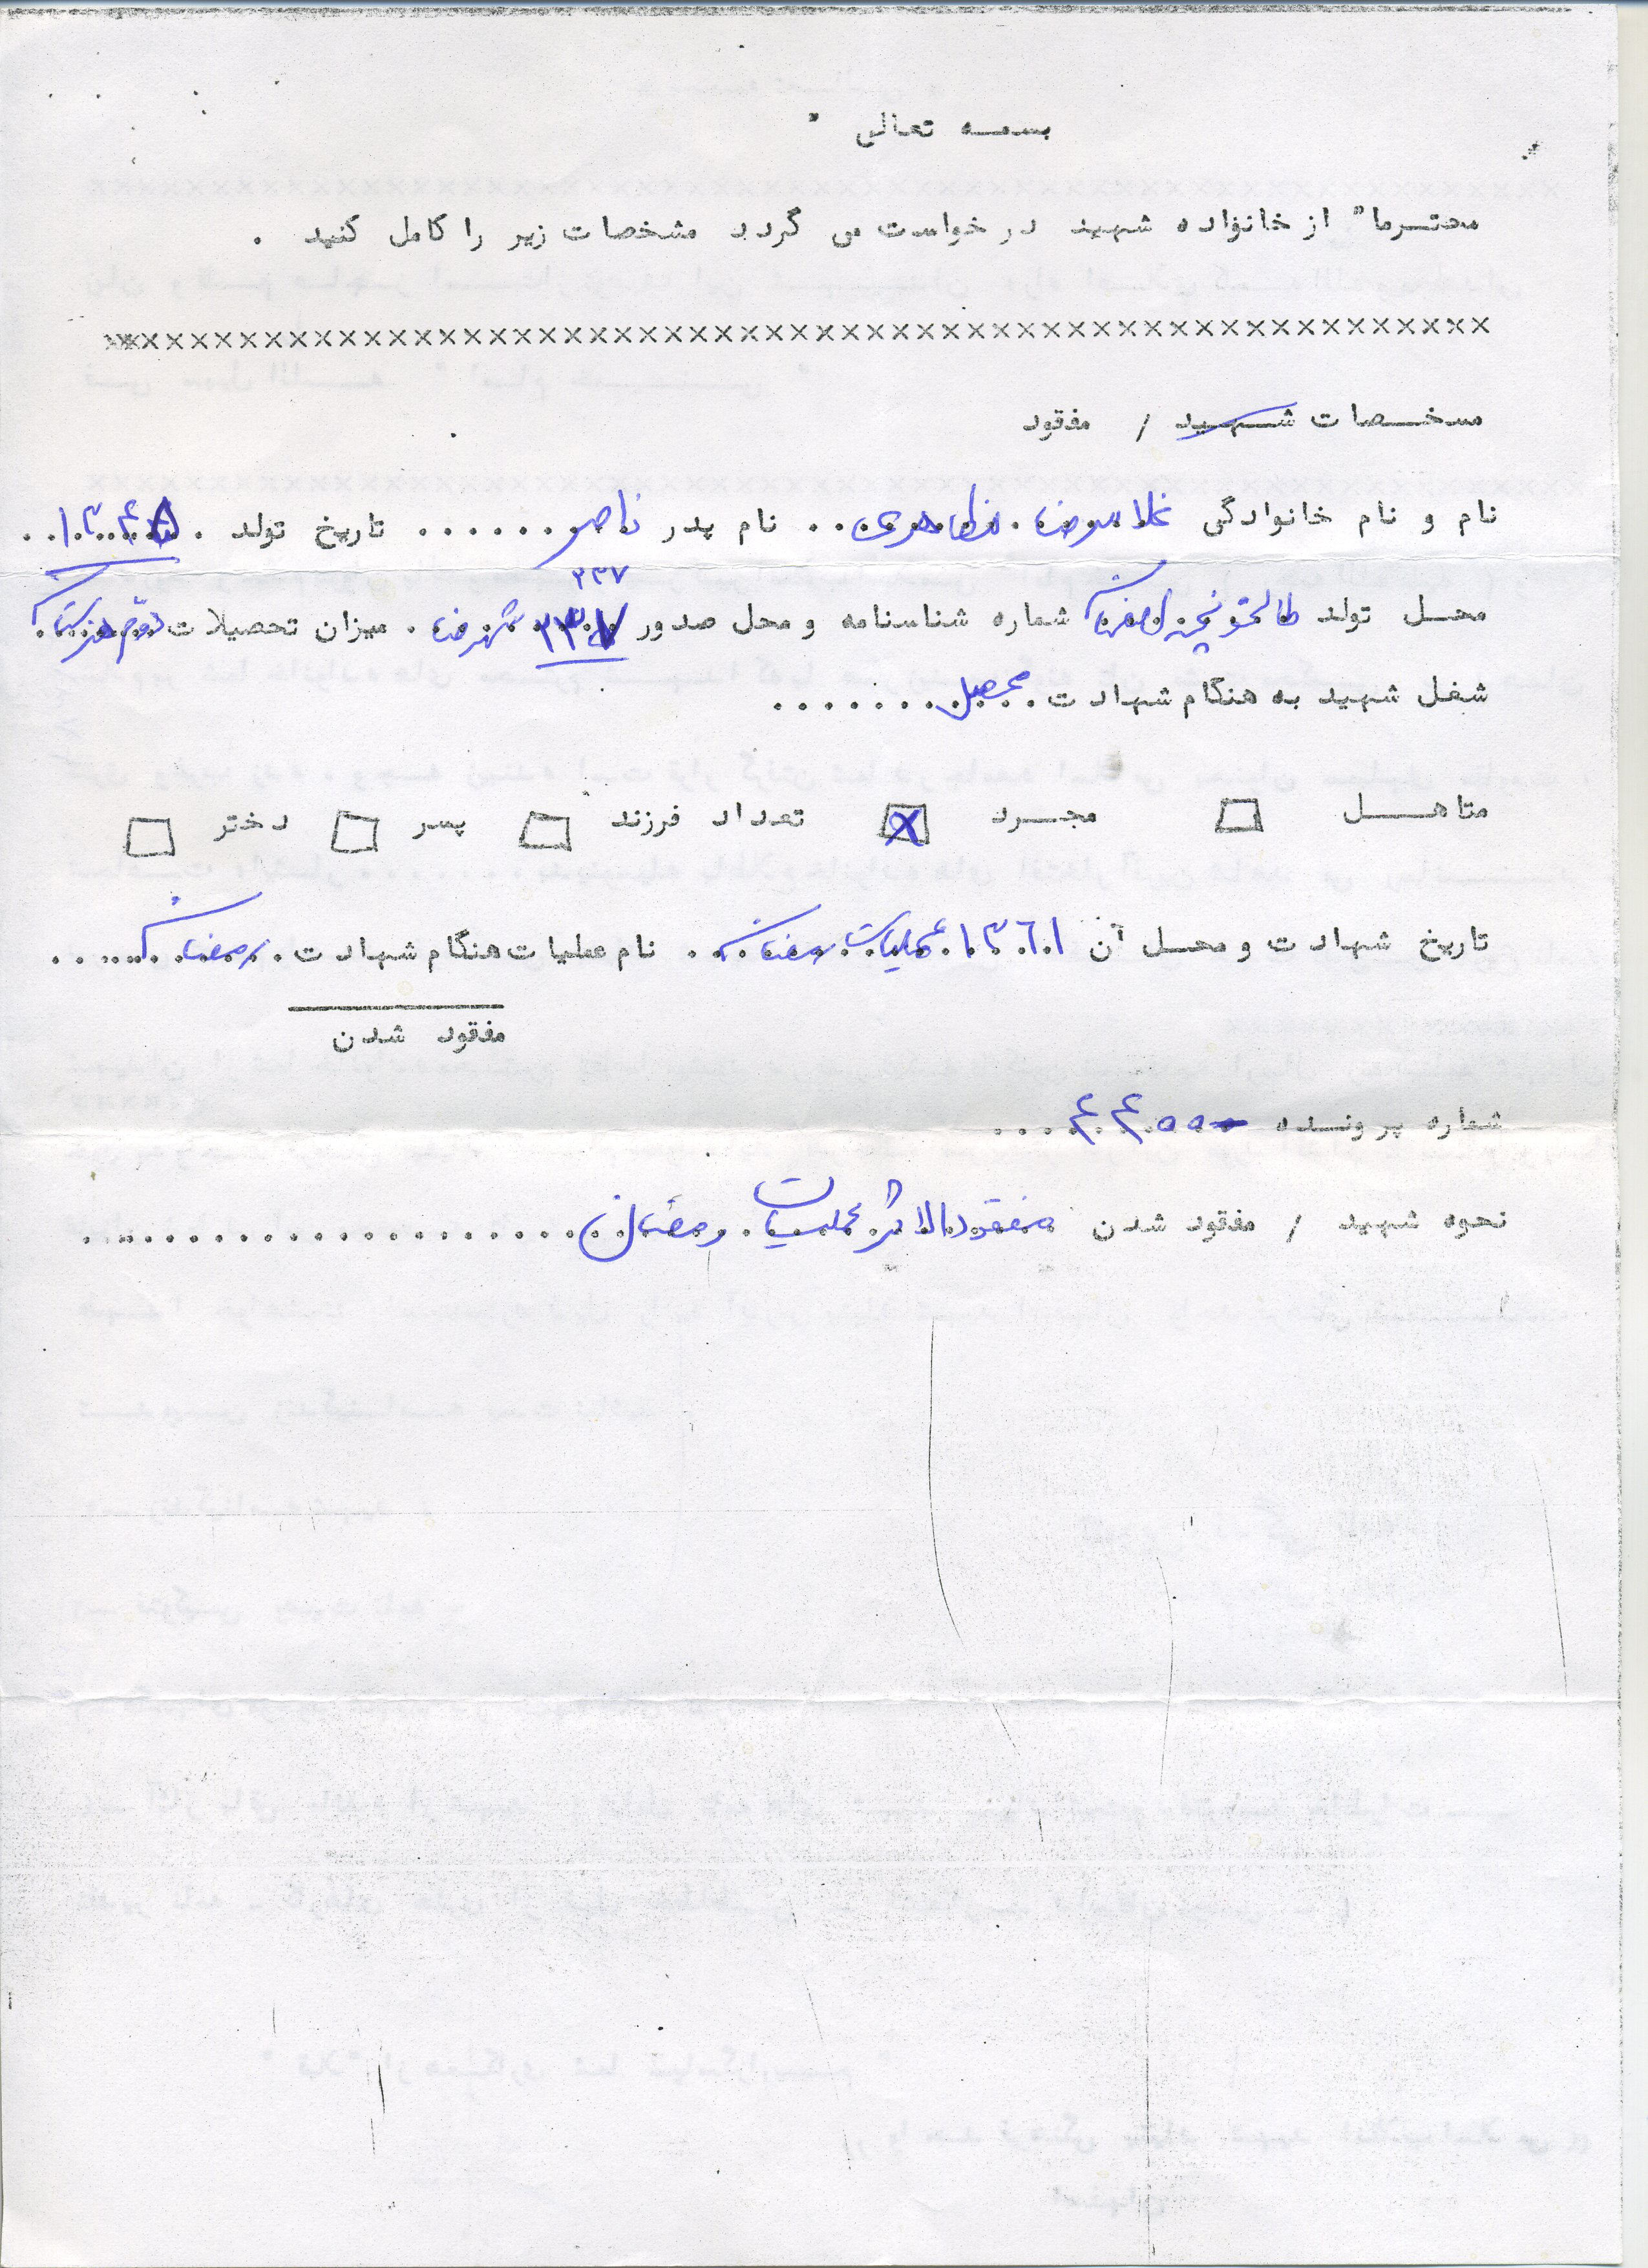 بسمه تعالی
محترما" از خانواده شهید درخواست می گردد مشخصات زیر را کامل کنید .
××××××××××××××××××××××××××××××××××××××××××××××××××××××
مشخصات شهید / مفقود
نام و نام خانوادگی غلامرضا مظاهری .. نام پدر ناصر ...... تاریخ تولد . ۱۳۴۵ ..
۲۳۷
محل تولد طالخونچه اصفهان شماره شناسنامه و محل صدور ۲۳۷ شهرضا . میزان تحصیلات دوم هنرستان
شغل شهید به هنگام شهادت . محصل .......
متاهل □ مجرد ☒ تعداد فرزند □ پسر □ دختر □
تاریخ شهادت و محل آن ۱۳۶۱ عملیات رمضان . نام عملیات هنگام شهادت . رمضان .....
مفقود شدن
شماره پرونده ۴۴۵۵۰ ....
نحوه شهید / مفقود شدن مفقودالاثر عملیات رمضان ....................